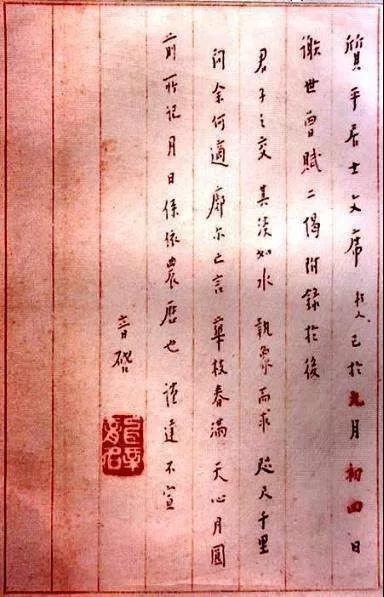 質平居士文席 朽人 已於九月初四日
謝世曾賦二偈附錄於後
君子之交 其淡如水 執象而求 咫尺千里
問余何適 廓尔亡言 華枝春滿 天心月圓
前所記月日係依農曆也 謹達不宣
音啓